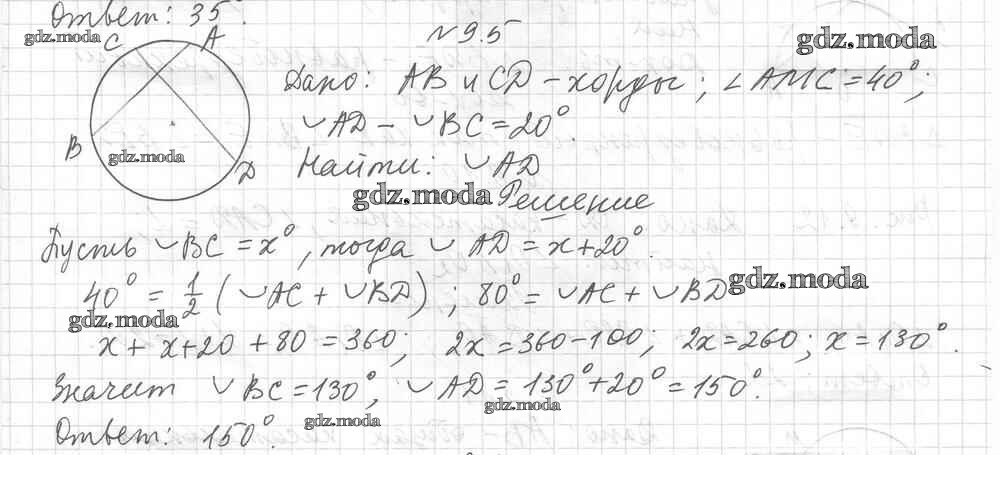 Ответ: 35°.
gdz.moda
C A
№ 9.5
gdz.moda
Дано: AB и CD - хорды; ∠AMC = 40°;
◡AD - ◡BC = 20°.
B
gdz.moda
D
Найти: ◡AD
gdz.moda
Решение
Пусть ◡BC = x°, тогда ◡AD = x+20°.
40° = 1/2 (◡AC + ◡BD); 80° = ◡AC + ◡BD
gdz.moda
gdz.moda
x + x+20 + 80 = 360; 2x = 360-100; 2x = 260; x = 130°.
Значит ◡BC = 130°; ◡AD = 130° + 20° = 150°.
gdz.moda
gdz.moda
Ответ: 150°.